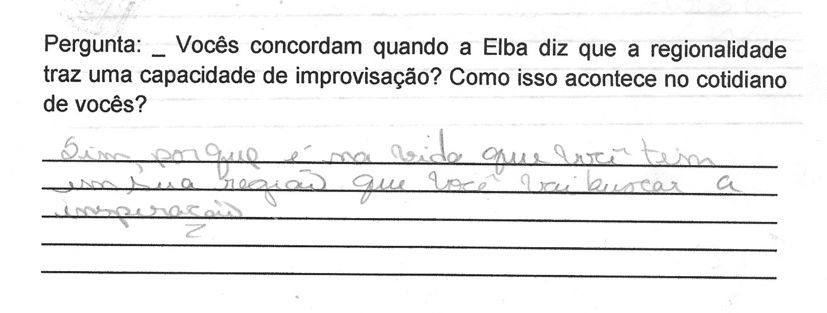 Pergunta: _ Vocês concordam quando a Elba diz que a regionalidade
traz uma capacidade de improvisação? Como isso acontece no cotidiano
de vocês?
Sim, porque é na vida que você tem
em sua região que você vai buscar a
inspiração